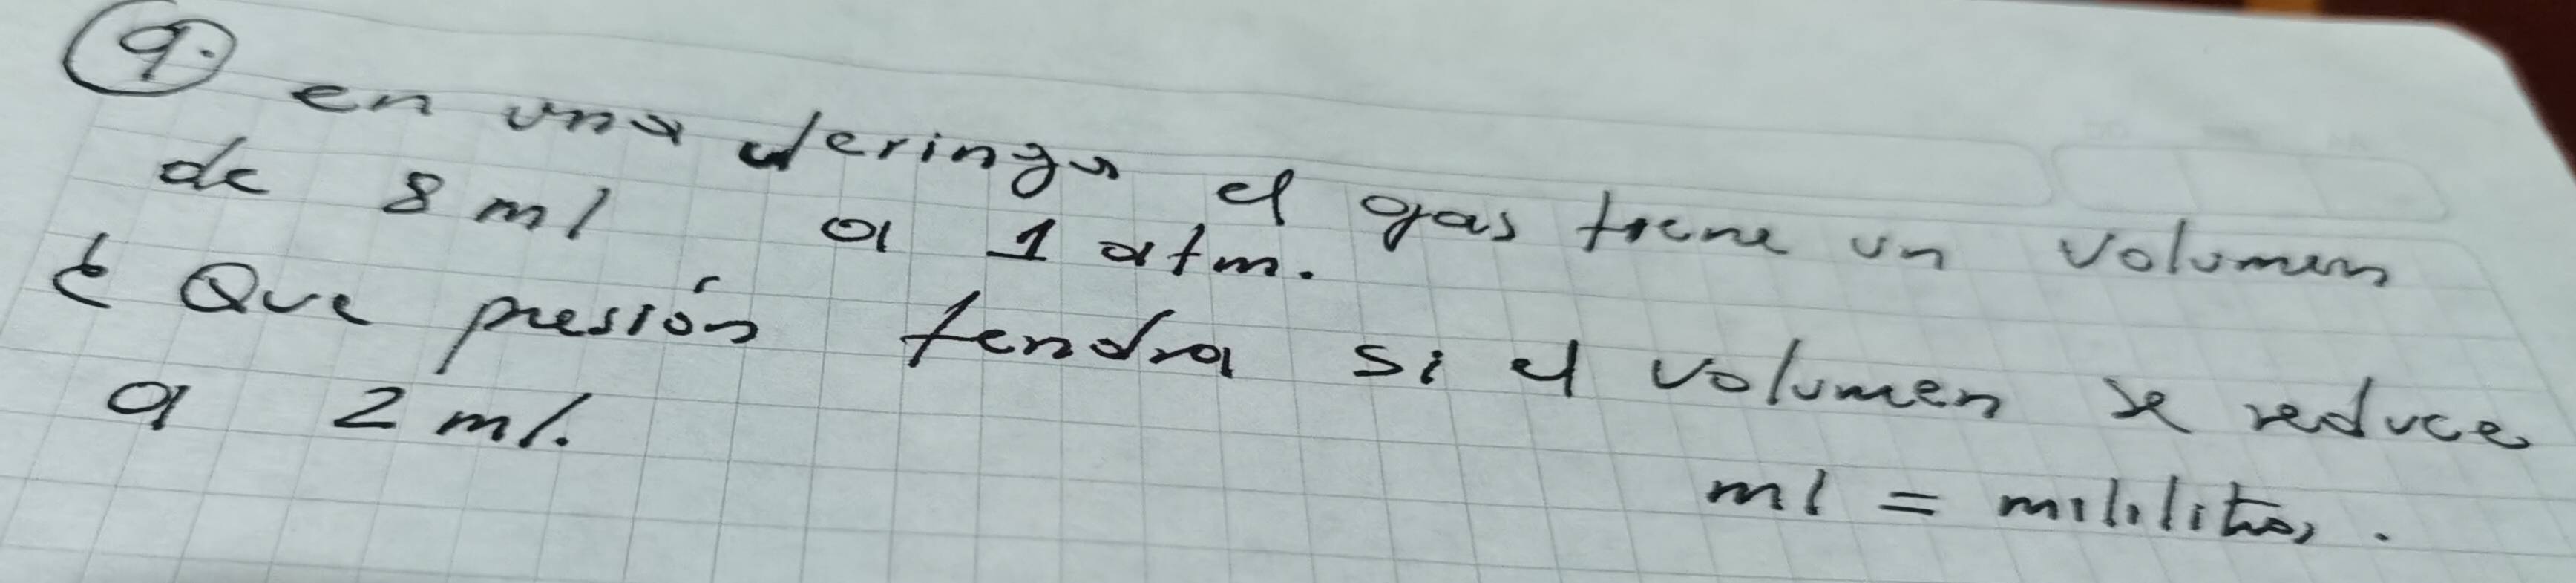 9.
en una jeringa el gas tiene un volumen
de 8 ml a 1 atm.
¿ Que presión tendra si el volumen se reduce
a 2 ml.
ml = mililitros.